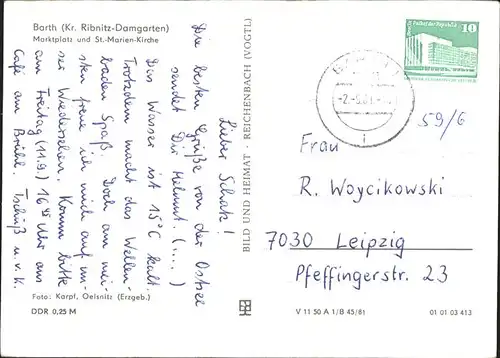 Barth (Kr. Ribnitz-Damgarten)
Marktplatz und St.-Marien-Kirche
Lieber Schatz!
Die besten Grüße von der Ostsee
sendet Dir Helmut. (...)
Das Wasser ist 15°C kalt.
Trotzdem macht das Wellen-
baden Spaß. Doch am mei-
sten freue ich mich auf un-
ser Wiedersehen. Komm bitte
am Freitag (11.9.) 16 Uhr ans
Café am Brühl. Tschüß u.v.K.
Foto: Karpf, Oelsnitz (Erzgeb.)
DDR 0,25 M
BILD UND HEIMAT · REICHENBACH (VOGTL)
V 11 50 A 1/B 45/81
01 01 03 413
Berlin, Palast der Republik
10
BARTH
1
59/6
Frau
R. Woycikowski
7030 Leipzig
Pfeffingerstr. 23